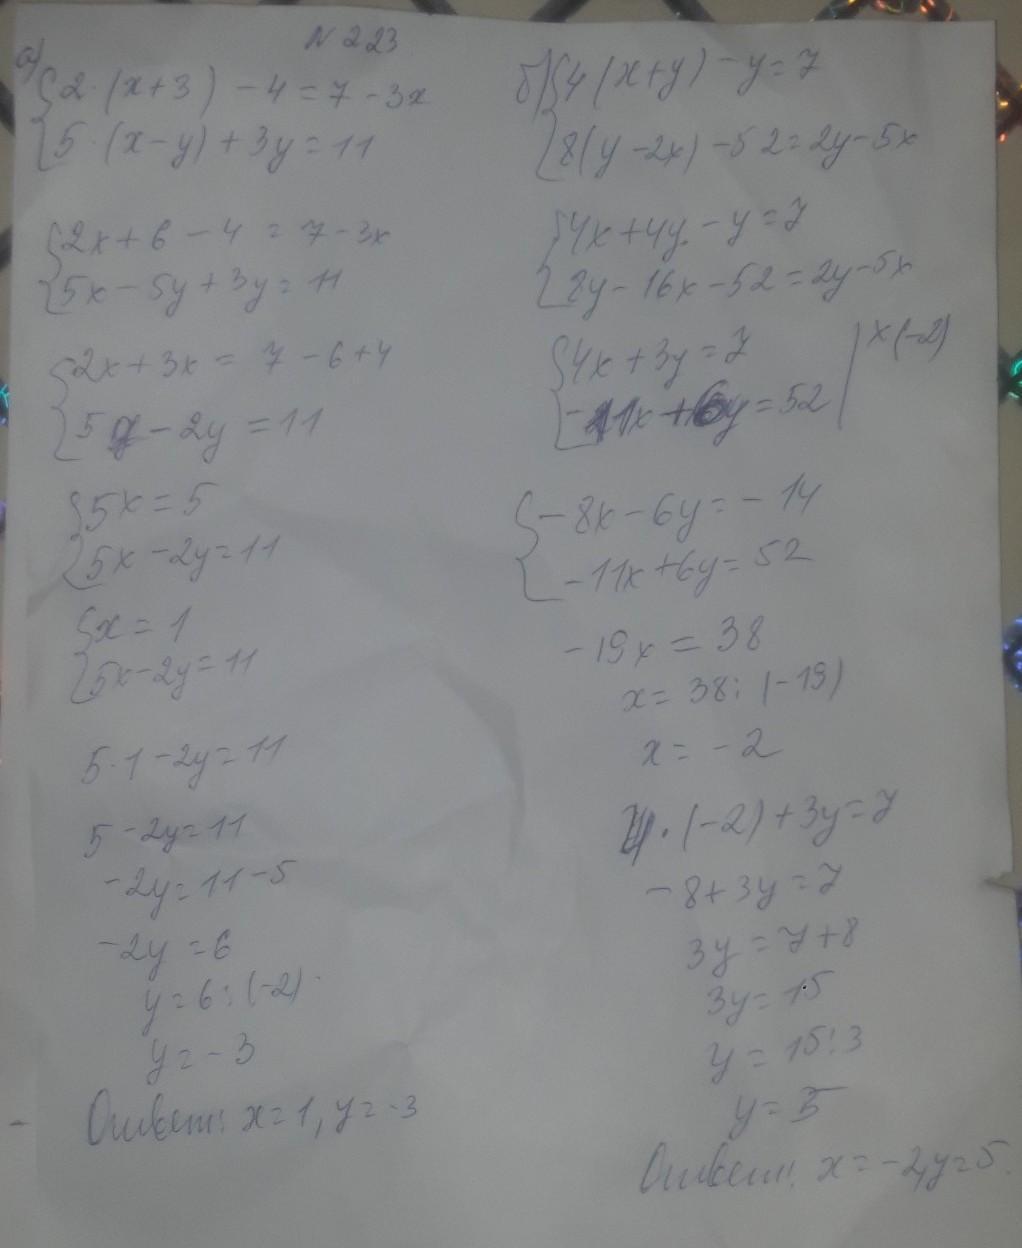 N 223
а) {2·(x+3) - 4 = 7 - 3x
5·(x-y) + 3y = 11
{2x+6-4 = 7-3x
5x-5y+3y = 11
{2x+3x = 7-6+4
5x-2y = 11
{5x = 5
5x-2y = 11
{x = 1
5x-2y = 11
5·1-2y = 11
5-2y = 11
-2y = 11-5
-2y = 6
y = 6:(-2)
y = -3
Ответ: x=1, y=-3
б) {4(x+y) - y = 7
8(y-2x) - 52 = 2y-5x
{4x+4y-y = 7
8y-16x-52 = 2y-5x
{4x+3y = 7 | x(-2)
-11x+6y = 52
{-8x-6y = -14
-11x+6y = 52
-19x = 38
x = 38:(-19)
x = -2
4·(-2)+3y = 7
-8+3y = 7
3y = 7+8
3y = 15
y = 15:3
y = 5
Ответ: x=-2, y=5.